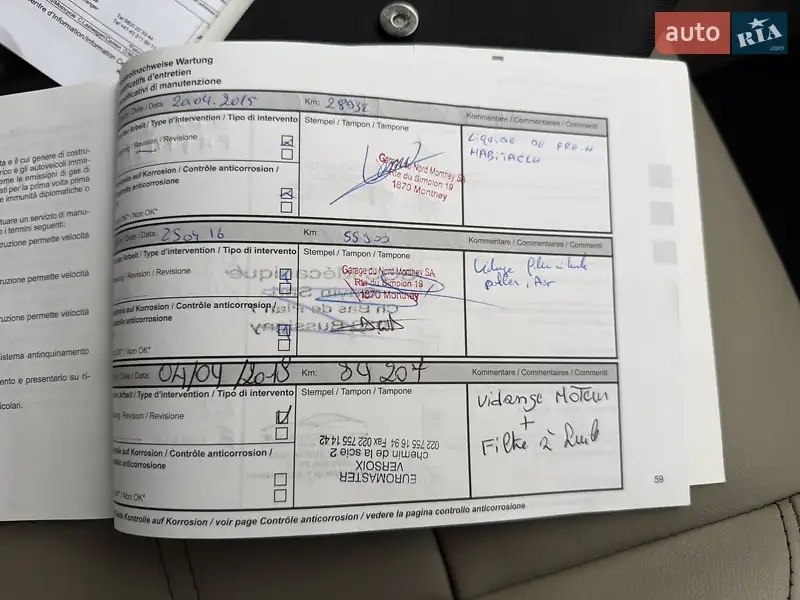 auto RIA .com
Tel 0800 22 55 44
entre d'information/Information Ce
ntrollnachweise Wartung
stificatifs d'entretien
ustificativi di manutenzione
/ Date / Data: 20.04.2015 Km: 28932 Kommentare / Commentaires / Commenti
der Arbeit / Type d'intervention / Tipo di intervento Stempel / Tampon / Tampone LIQUIDE DE FREIN
/ Revision / Revisione HABITACLE
Garage du Nord Monthey SA
Rte du Simplon 19
1870 Monthey
ntrolle auf Korrosion / Contrôle anticorrosion /
anticorrosione
OK* / Non OK*
/ Date / Data: 25 04 16 Km: 55900 Kommentare / Commentaires / Commenti
der Arbeit / Type d'intervention / Tipo di intervento Stempel / Tampon / Tampone Vidange filtre à huile
/ Revision / Revisione pollen, Air
Garage du Nord Monthey SA
Rte du Simplon 19
1870 Monthey
ntrolle auf Korrosion / Contrôle anticorrosion /
trollo anticorrosione
OK* / Non OK*
/ Date / Data: 04/04/2018 Km: 84 207 Kommentare / Commentaires / Commenti
Arbeit / Type d'intervention / Tipo di intervento Stempel / Tampon / Tampone Vidange Moteur
/ Revision / Revisione +
Filtre à huile
EUROMASTER
VERSOIX
chemin de la scie 2
022 755 16 94 Fax 022 755 14 42
le auf Korrosion / Contrôle anticorrosion /
anticorrosione
OK* / Non OK*
Kontrolle auf Korrosion / voir page Contrôle anticorrosion / vedere la pagina controllo anticorrosione
59
ta e il cui genere di costru-
rico e gli autoveicoli imma-
me le emissioni di gas di
ati per la prima volta prima
e immunità diplomatiche o
tuare un servizio di manu-
i termini seguenti:
truzione permette velocità
truzione permette velocità
truzione permette velocità
sistema antinquinamento
ento e presentario su ri-
icolari.